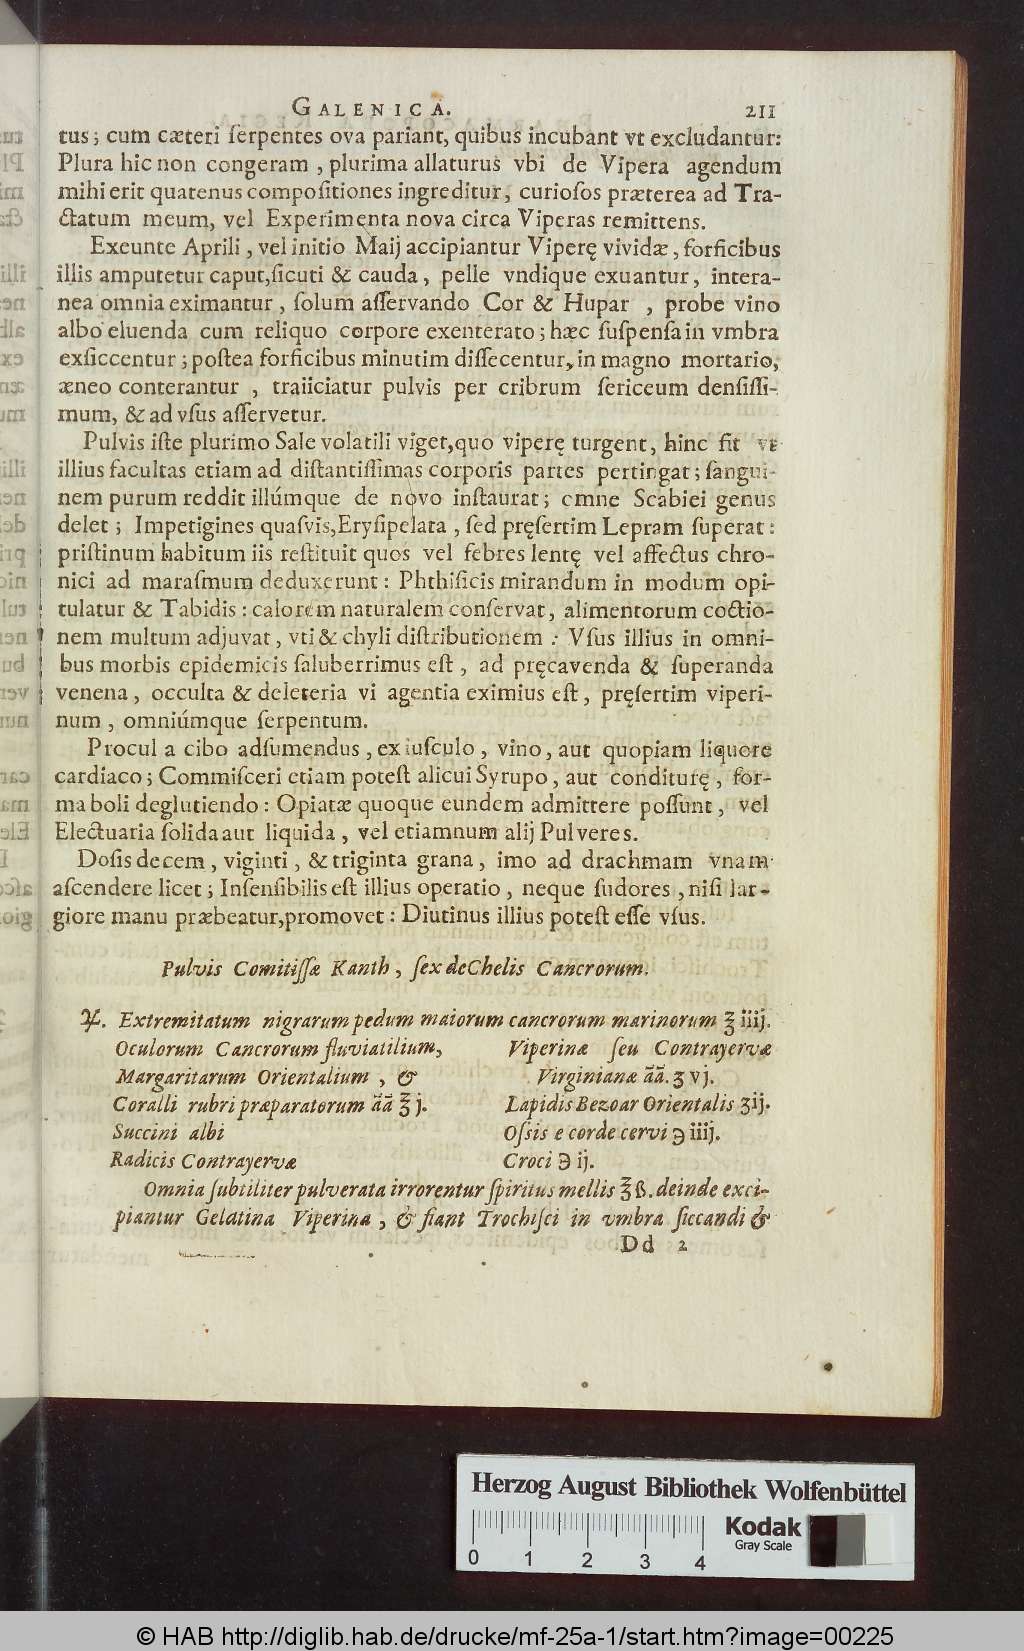 GALENICA. 211
tus; cum cæteri ſerpentes ova pariant, quibus incubant vt excludantur:
Plura hic non congeram, plurima allaturus vbi de Vipera agendum
mihi erit quatenus compoſitiones ingreditur, curioſos præterea ad Tra-
ctatum meum, vel Experimenta nova circa Viperas remittens.
Exeunte Aprili, vel initio Maij accipiantur Viperę vividæ, forficibus
illis amputetur caput, ſicuti & cauda, pelle vndique exuantur, intera-
nea omnia eximantur, ſolum aſſervando Cor & Hupar, probe vino
albo eluenda cum reliquo corpore exenterato; hæc ſuſpenſa in vmbra
exſiccentur; poſtea forficibus minutim diſſecentur, in magno mortario,
æneo conterantur, traiiciatur pulvis per cribrum ſericeum denſiſſi-
mum, & ad vſus aſſervetur.
Pulvis iſte plurimo Sale volatili viget, quo viperę turgent, hinc fit vt
illius facultas etiam ad diſtantiſſimas corporis partes pertingat; ſangui-
nem purum reddit illúmque de novo inſtaurat; omne Scabiei genus
delet; Impetigines quaſvis, Eryſipelata, ſed pręſertim Lepram ſuperat:
priſtinum habitum iis reſtituit quos vel febres lentę vel affectus chro-
nici ad maraſmum deduxerunt: Phthiſicis mirandum in modum opi-
tulatur & Tabidis: calorem naturalem conſervat, alimentorum coctio-
nem multum adjuvat, vti & chyli diſtributionem: Vſus illius in omni-
bus morbis epidemicis ſaluberrimus eſt, ad pręcavenda & ſuperanda
venena, occulta & deleteria vi agentia eximius eſt, pręſertim viperi-
num, omniúmque ſerpentum.
Procul a cibo adſumendus, ex iuſculo, vino, aut quopiam liquore
cardiaco; Commiſceri etiam poteſt alicui Syrupo, aut conditurę, for-
ma boli deglutiendo: Opiatæ quoque eundem admittere poſſunt, vel
Electuaria ſolida aut liquida, vel etiamnum alij Pulveres.
Doſis decem, viginti, & triginta grana, imo ad drachmam vnam
aſcendere licet; Inſenſibilis eſt illius operatio, neque ſudores, niſi lar-
giore manu præbeatur, promovet: Diutinus illius poteſt eſſe vſus.
Pulvis Comitiſſæ Kanth, ſex de Chelis Cancrorum.
♃. Extremitatum nigrarum pedum maiorum cancrorum marinorum ℥ iiij.
Oculorum Cancrorum fluviatilium,
Margaritarum Orientalium, &
Coralli rubri præparatorum āā ℥ j.
Succini albi
Radicis Contrayervæ
Viperinæ ſeu Contrayervæ
Virginianæ āā. ʒ vj.
Lapidis Bezoar Orientalis ʒij.
Oſsis e corde cervi ℈ iiij.
Croci ℈ ij.
Omnia ſubtiliter pulverata irrorentur ſpiritus mellis ℥ ß. deinde exci-
piantur Gelatina Viperina, & fiant Trochiſci in vmbra ſiccandi &
Dd 2
Herzog August Bibliothek Wolfenbüttel
Kodak
Gray Scale
0 1 2 3 4
© HAB http://diglib.hab.de/drucke/mf-25a-1/start.htm?image=00225